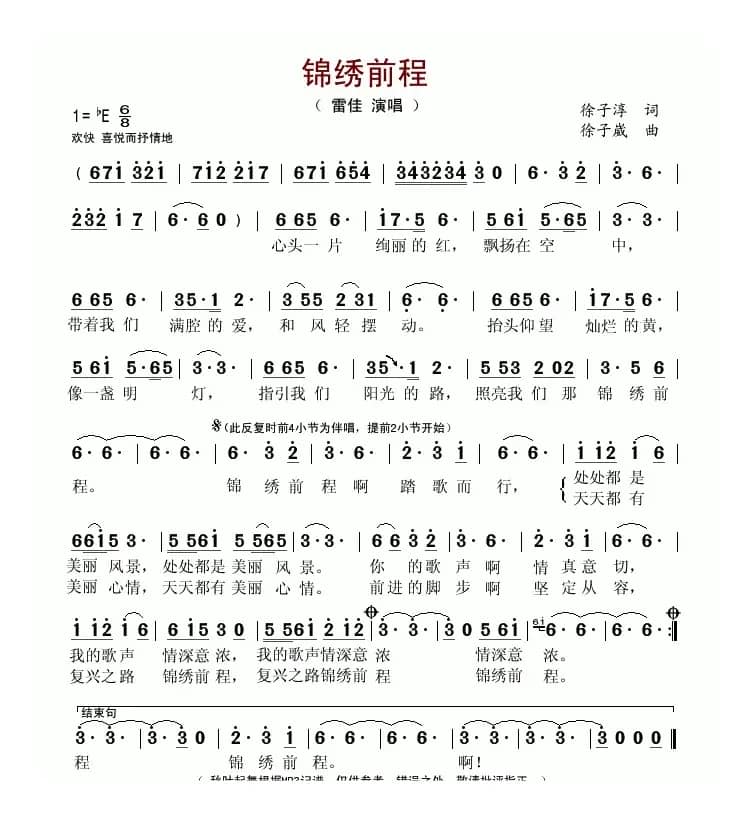 锦绣前程
（ 雷佳 演唱 ）
1= ♭E 6/8
徐子淳 词
欢快 喜悦而抒情地
徐子崴 曲
( 671 321 | 712 217 | 671 654 | 343234 | 3 0 | 6· 3 2 | 3· 6· |
232 1 7 | 6· 6 0 ) | 6 65 6· | 17·5 6· | 5 61 5·65 | 3· 3· |
心头一片 绚丽的红， 飘扬在空 中，
6 65 6· | 35·1 2· | 3 55 2 31 | 6· 6· | 6 65 6· | 17·5 6· |
带着我们 满腔的爱， 和风轻摆动。 抬头仰望 灿烂的黄，
5 61 5·65 | 3· 3· | 6 65 6· | 35·1 2· | 5 53 2 02 | 3· 3 2 |
像一盏明 灯， 指引我们 阳光的路， 照亮我们那 锦绣前
𝄋(此反复时前4小节为伴唱，提前2小节开始)
6· 6· | 6· 6· | 6· 3 2 | 3· 6· | 2· 3 1 | 6· 6· | 1 12 1 6 |
程。 锦绣前程啊 踏歌而行， 处处都是
天天都有
6615 3 | 5 561 5 565 | 3· 3· | 6 6 3 2 | 3· 6· | 2· 3 1 | 6· 6· |
美丽风景，处处都是美丽风景。 你的歌声啊 情真意切，
美丽心情，天天都有美丽心情。 前进的脚步啊 坚定从容，
1 12 1 6 | 615 3 0 | 5 561 2 12 | 3· 3· | 3 0 5 61 | 6· 6· | 6· 6· :|
我的歌声 情深意浓，我的歌声情深意浓 情深意浓。
复兴之路 锦绣前程，复兴之路锦绣前程 锦绣前程。
结束句
3· 3· | 3· 3 0 | 2· 3 1 | 6· 6· | 6· 6· | 3· 3· | 3· 3· | 3 0 0 0 ‖
程 锦绣前程。 啊！